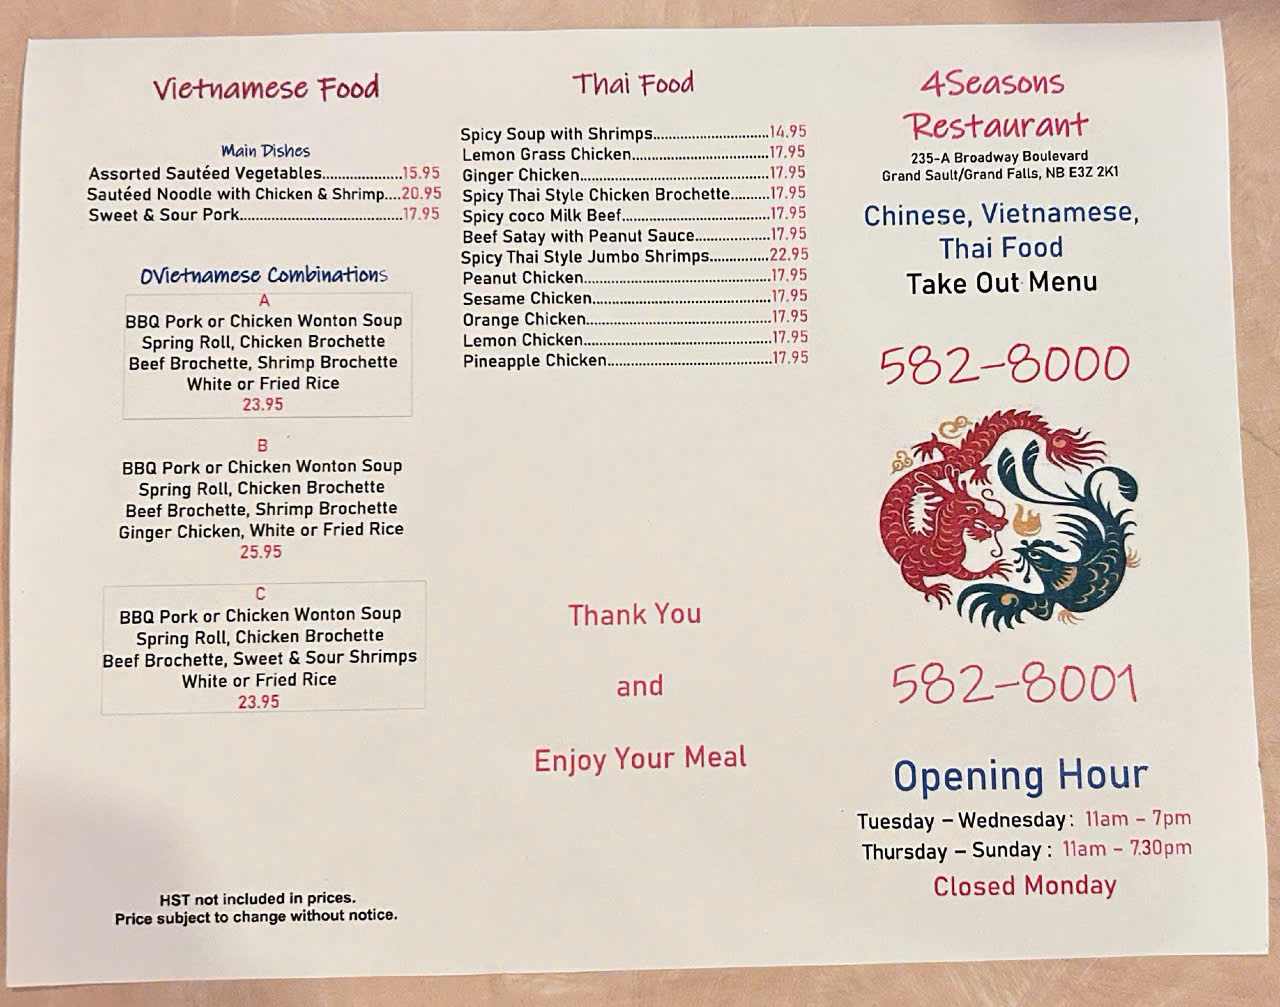 Vietnamese Food
Main Dishes
Assorted Sautéed Vegetables..................15.95
Sautéed Noodle with Chicken & Shrimp....20.95
Sweet & Sour Pork....................................17.95
OVietnamese Combinations
A
BBQ Pork or Chicken Wonton Soup
Spring Roll, Chicken Brochette
Beef Brochette, Shrimp Brochette
White or Fried Rice
23.95
B
BBQ Pork or Chicken Wonton Soup
Spring Roll, Chicken Brochette
Beef Brochette, Shrimp Brochette
Ginger Chicken, White or Fried Rice
25.95
C
BBQ Pork or Chicken Wonton Soup
Spring Roll, Chicken Brochette
Beef Brochette, Sweet & Sour Shrimps
White or Fried Rice
23.95
HST not included in prices.
Price subject to change without notice.
Thai Food
Spicy Soup with Shrimps..........................14.95
Lemon Grass Chicken...............................17.95
Ginger Chicken...........................................17.95
Spicy Thai Style Chicken Brochette.........17.95
Spicy coco Milk Beef..................................17.95
Beef Satay with Peanut Sauce.................17.95
Spicy Thai Style Jumbo Shrimps.............22.95
Peanut Chicken..........................................17.95
Sesame Chicken........................................17.95
Orange Chicken..........................................17.95
Lemon Chicken..........................................17.95
Pineapple Chicken.....................................17.95
Thank You
and
Enjoy Your Meal
4Seasons
Restaurant
235-A Broadway Boulevard
Grand Sault/Grand Falls, NB E3Z 2K1
Chinese, Vietnamese,
Thai Food
Take Out Menu
582-8000
582-8001
Opening Hour
Tuesday – Wednesday: 11am – 7pm
Thursday – Sunday : 11am – 7.30pm
Closed Monday